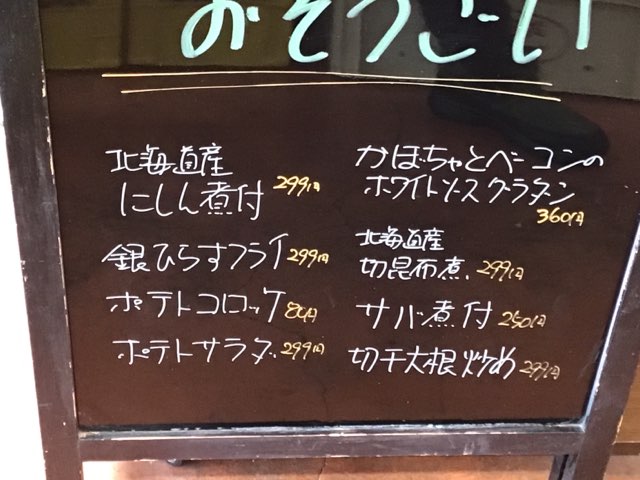 おそうざい
北海道産
にしん煮付 299円
銀ひらすフライ 299円
ポテトコロッケ 80円
ポテトサラダ 299円
かぼちゃとベーコンの
ホワイトソースグラタン
360円
北海道産
切昆布煮 299円
サバ煮付 250円
切干大根炒め 299円